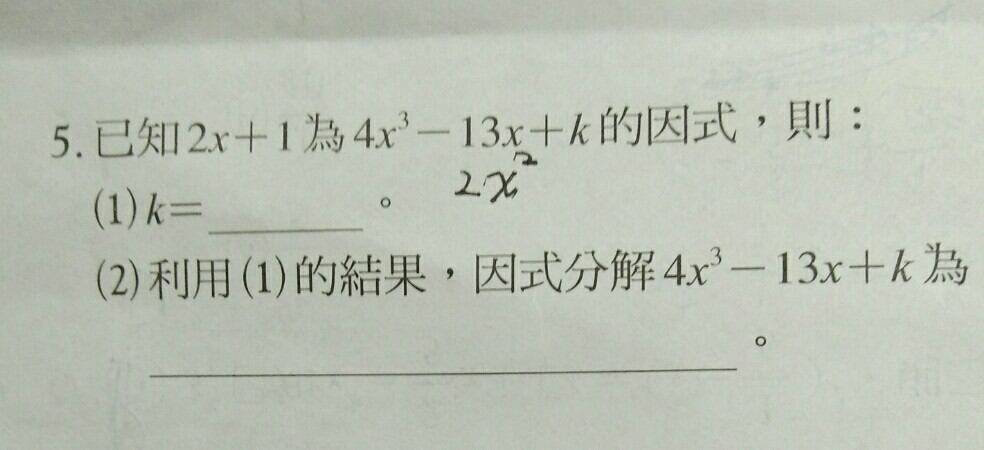 5. 已知2x+1為4x³-13x+k的因式，則：
2x²
(1) k=______。
(2) 利用(1)的結果，因式分解4x³-13x+k為
______。